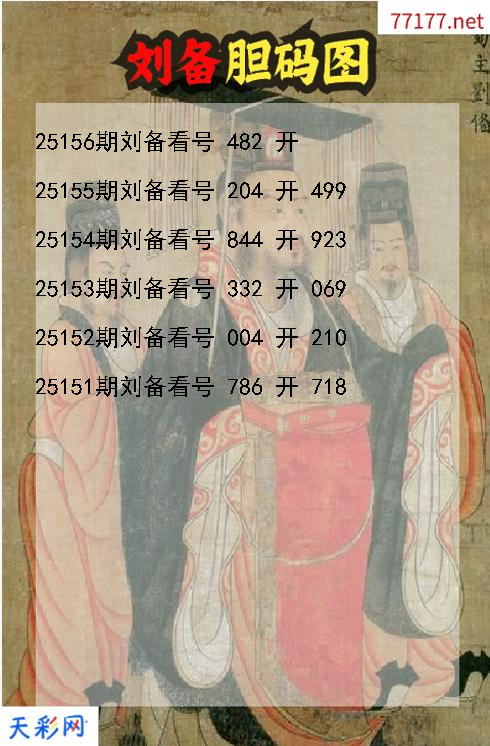 77177.net
蜀主劉備
刘备胆码图
25156期刘备看号 482 开
25155期刘备看号 204 开 499
25154期刘备看号 844 开 923
25153期刘备看号 332 开 069
25152期刘备看号 004 开 210
25151期刘备看号 786 开 718
天彩网